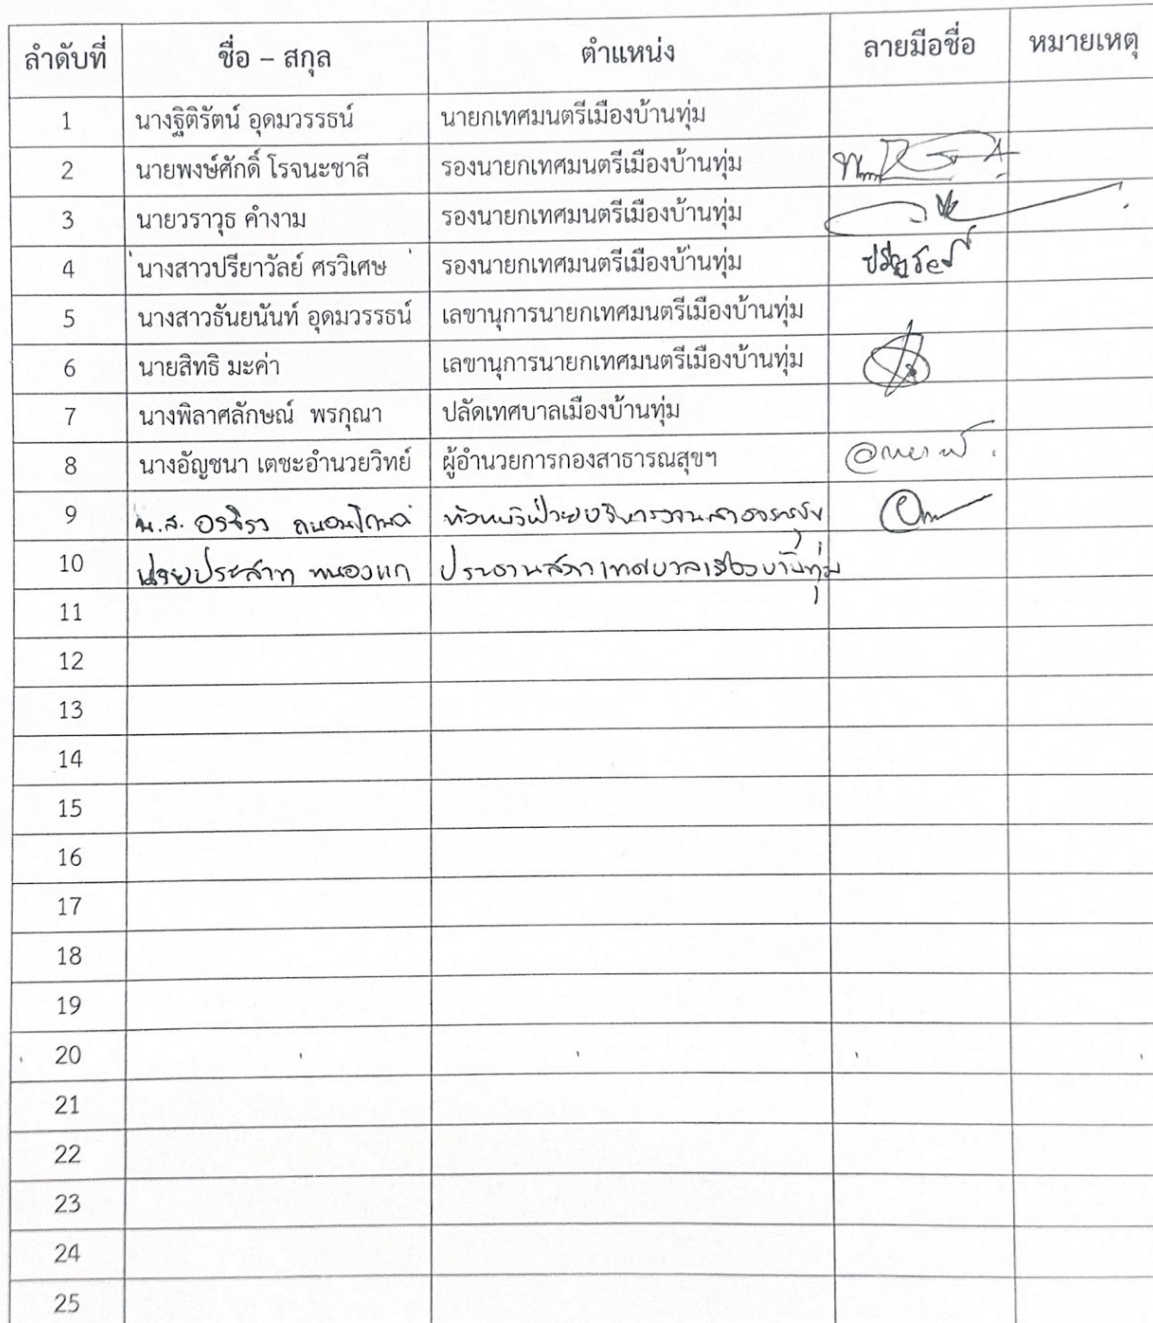 ลำดับที่ ชื่อ – สกุล ตำแหน่ง ลายมือชื่อ หมายเหตุ
1 นางฐิติรัตน์ อุดมวรรธน์ นายกเทศมนตรีเมืองบ้านทุ่ม
2 นายพงษ์ศักดิ์ โรจนะชาลี รองนายกเทศมนตรีเมืองบ้านทุ่ม
3 นายวราวุธ คำงาม รองนายกเทศมนตรีเมืองบ้านทุ่ม
4 นางสาวปรียาวัลย์ ศรวิเศษ รองนายกเทศมนตรีเมืองบ้านทุ่ม
5 นางสาวธันยนันท์ อุดมวรรธน์ เลขานุการนายกเทศมนตรีเมืองบ้านทุ่ม
6 นายสิทธิ มะค่า เลขานุการนายกเทศมนตรีเมืองบ้านทุ่ม
7 นางพิลาศลักษณ์ พรกุณา ปลัดเทศบาลเมืองบ้านทุ่ม
8 นางอัญชนา เตชะอำนวยวิทย์ ผู้อำนวยการกองสาธารณสุขฯ
9 น.ส. หัวหน้าฝ่ายบริหารงานสาธารณสุข
10 นายประสาท ประธานสภาเทศบาลเมืองบ้านทุ่ม
11
12
13
14
15
16
17
18
19
20
21
22
23
24
25